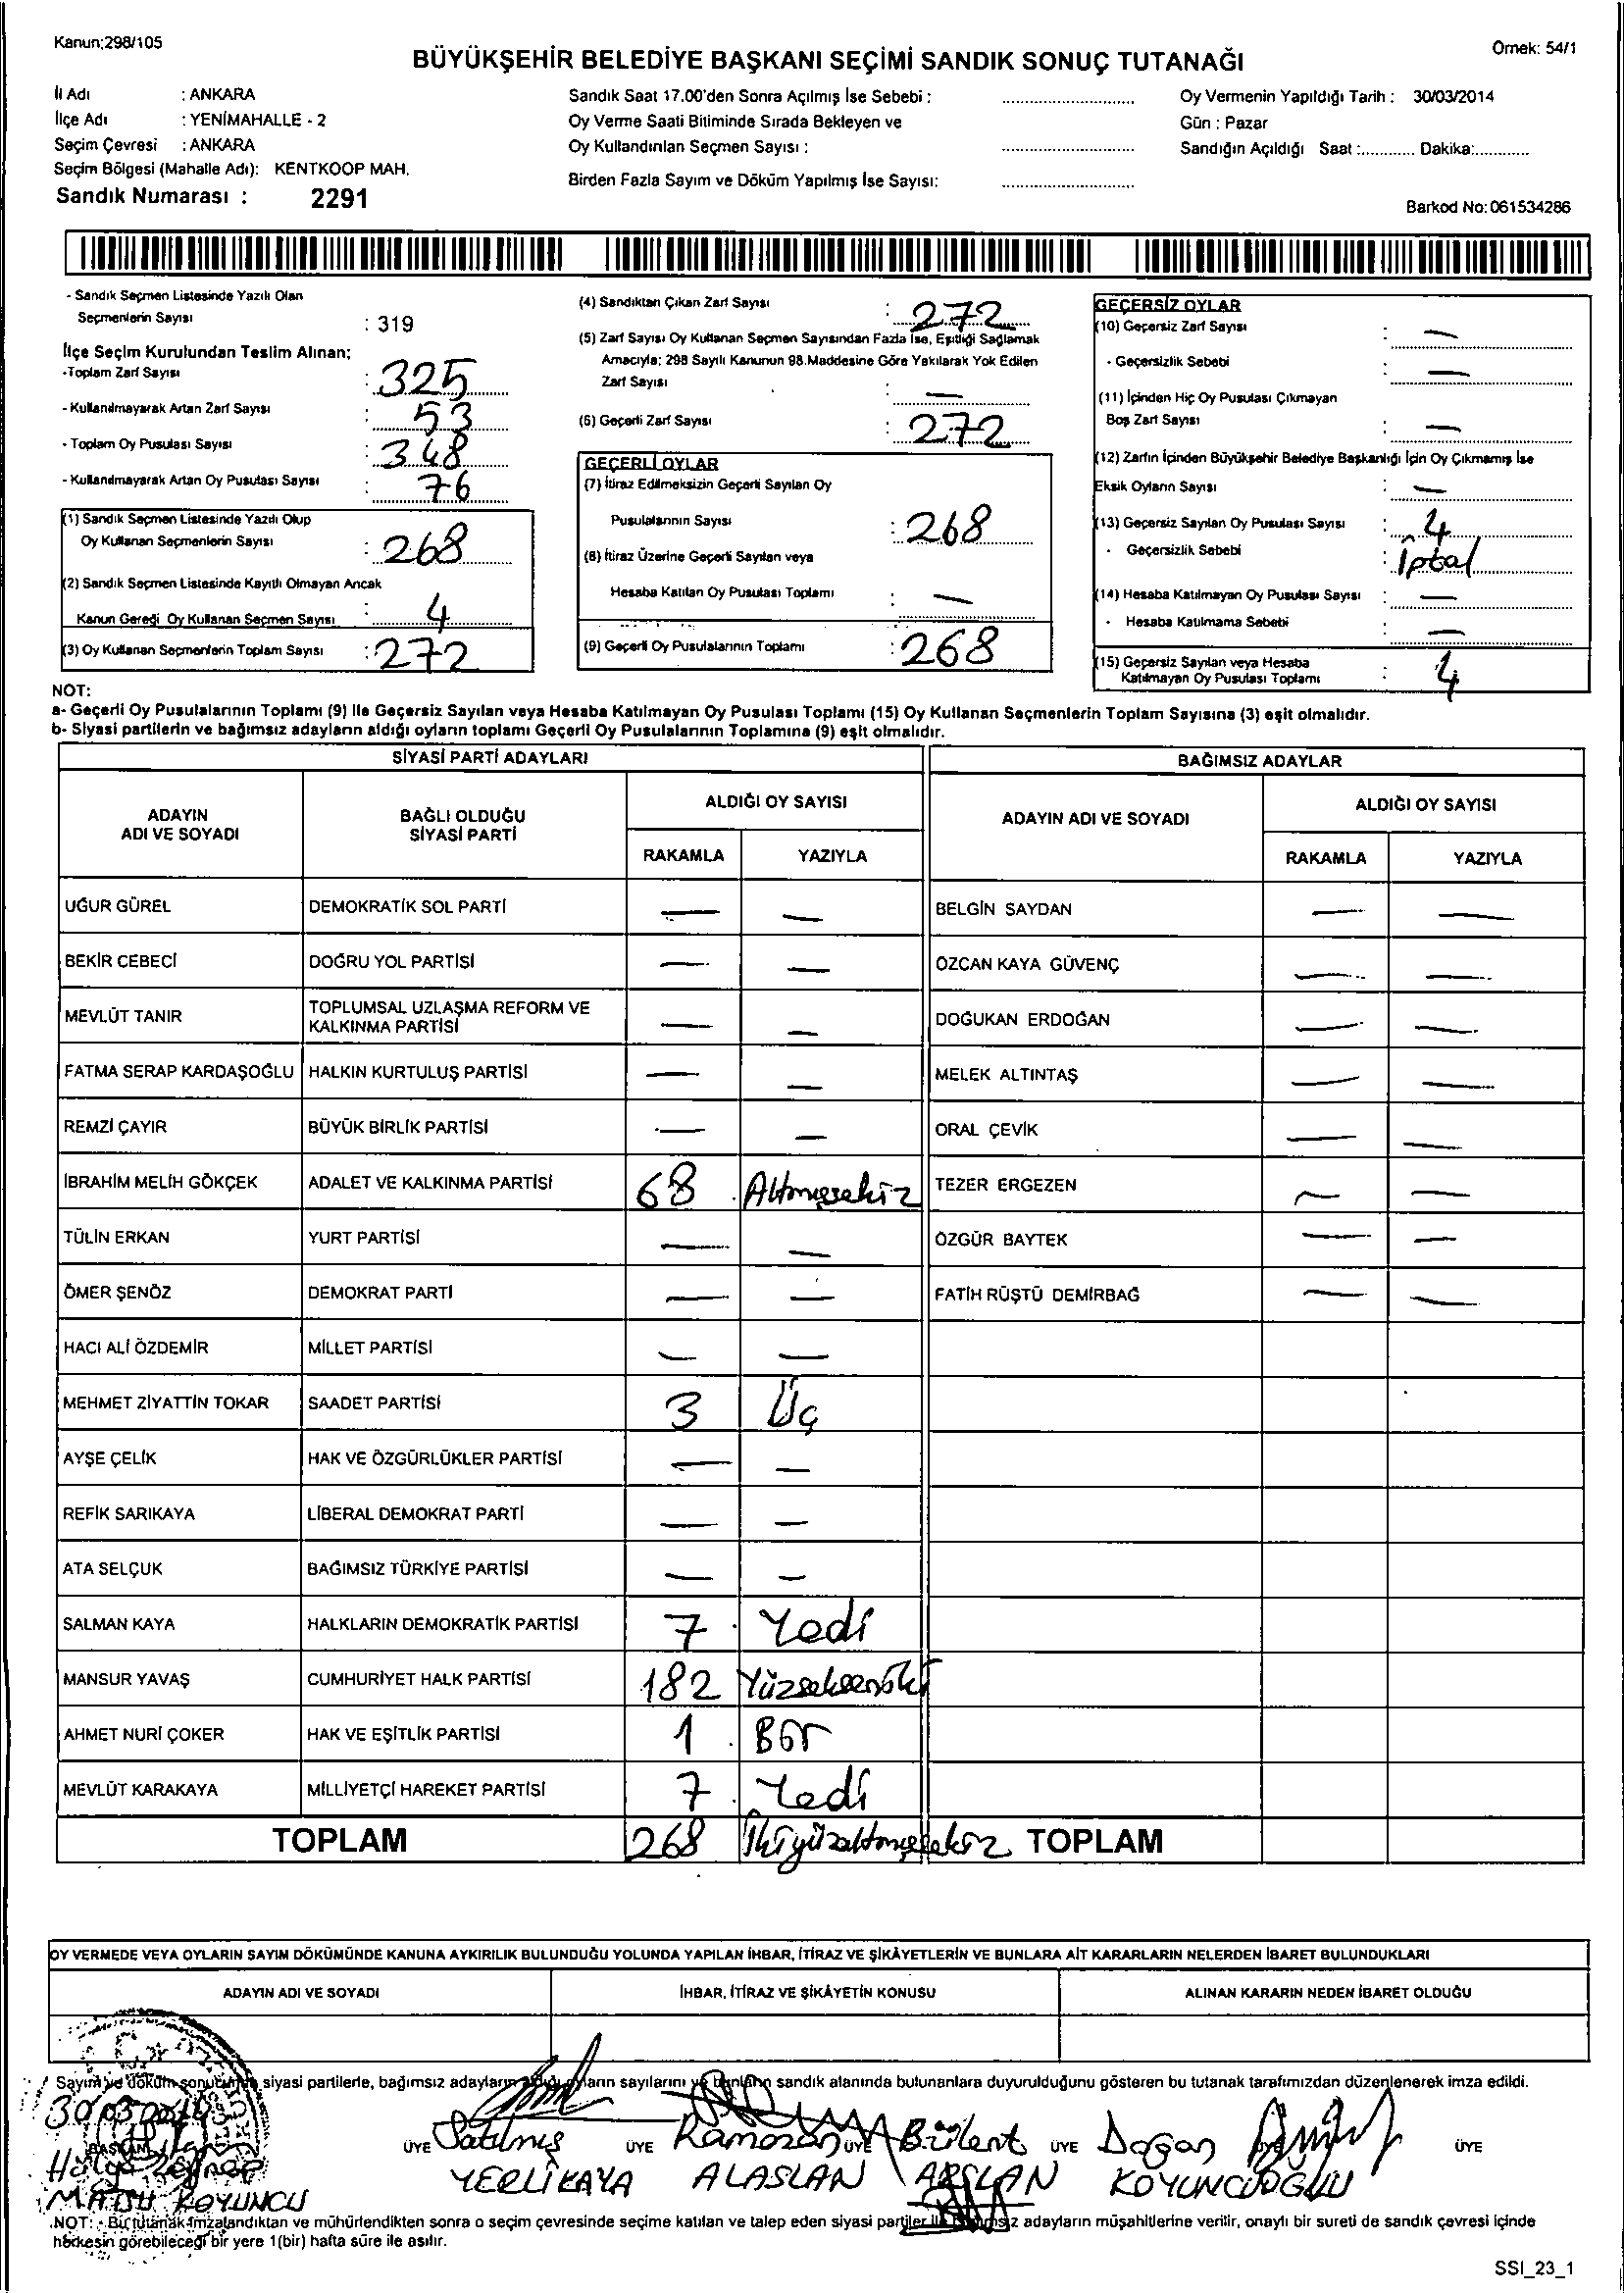 Kanun;298/105
Örnek: 54/1
BÜYÜKŞEHİR BELEDİYE BAŞKANI SEÇİMİ SANDIK SONUÇ TUTANAĞI
İl Adı : ANKARA
İlçe Adı : YENİMAHALLE - 2
Seçim Çevresi : ANKARA
Seçim Bölgesi (Mahalle Adı): KENTKOOP MAH.
Sandık Numarası : 2291
Sandık Saat 17.00'den Sonra Açılmış İse Sebebi :
Oy Verme Saati Bitiminde Sırada Bekleyen ve
Oy Kullandırılan Seçmen Sayısı :
Birden Fazla Sayım ve Döküm Yapılmış İse Sayısı:
Oy Vermenin Yapıldığı Tarih : 30/03/2014
Gün : Pazar
Sandığın Açıldığı Saat :............ Dakika:............
Barkod No:061534286
- Sandık Seçmen Listesinde Yazılı Olan
Seçmenlerin Sayısı : 319
İlçe Seçim Kurulundan Teslim Alınan;
-Toplam Zarf Sayısı : 325
- Kullanılmayarak Artan Zarf Sayısı : 53
- Toplam Oy Pusulası Sayısı : 348
- Kullanılmayarak Artan Oy Pusulası Sayısı : 76
(1) Sandık Seçmen Listesinde Yazılı Olup
Oy Kullanan Seçmenlerin Sayısı : 268
(2) Sandık Seçmen Listesinde Kayıtlı Olmayan Ancak
Kanun Gereği Oy Kullanan Seçmen Sayısı : 4
(3) Oy Kullanan Seçmenlerin Toplam Sayısı : 272
(4) Sandıktan Çıkan Zarf Sayısı : 272
(5) Zarf Sayısı Oy Kullanan Seçmen Sayısından Fazla İse, Eşitliği Sağlamak
Amacıyla; 298 Sayılı Kanunun 98.Maddesine Göre Yakılarak Yok Edilen
Zarf Sayısı : —
(6) Geçerli Zarf Sayısı : 272
GEÇERLİ OYLAR
(7) İtiraz Edilmeksizin Geçerli Sayılan Oy
Pusulalarının Sayısı : 268
(8) İtiraz Üzerine Geçerli Sayılan veya
Hesaba Katılan Oy Pusulası Toplamı : —
(9) Geçerli Oy Pusulalarının Toplamı : 268
GEÇERSİZ OYLAR
(10) Geçersiz Zarf Sayısı : —
- Geçersizlik Sebebi : —
(11) İçinden Hiç Oy Pusulası Çıkmayan
Boş Zarf Sayısı : —
(12) Zarfın İçinden Büyükşehir Belediye Başkanlığı İçin Oy Çıkmamış İse
Eksik Oyların Sayısı : —
(13) Geçersiz Sayılan Oy Pusulası Sayısı : 4
- Geçersizlik Sebebi : İptal
(14) Hesaba Katılmayan Oy Pusulası Sayısı : —
- Hesaba Katılmama Sebebi : —
(15) Geçersiz Sayılan veya Hesaba
Katılmayan Oy Pusulası Toplamı : 4
NOT:
a- Geçerli Oy Pusulalarının Toplamı (9) İle Geçersiz Sayılan veya Hesaba Katılmayan Oy Pusulası Toplamı (15) Oy Kullanan Seçmenlerin Toplam Sayısına (3) eşit olmalıdır.
b- Siyasi partilerin ve bağımsız adayların aldığı oyların toplamı Geçerli Oy Pusulalarının Toplamına (9) eşit olmalıdır.
SİYASİ PARTİ ADAYLARI BAĞIMSIZ ADAYLAR
ADAYIN ADI VE SOYADI BAĞLI OLDUĞU SİYASİ PARTİ ALDIĞI OY SAYISI ADAYIN ADI VE SOYADI ALDIĞI OY SAYISI
RAKAMLA YAZIYLA RAKAMLA YAZIYLA
UĞUR GÜREL DEMOKRATİK SOL PARTİ — — BELGİN SAYDAN — —
BEKİR CEBECİ DOĞRU YOL PARTİSİ — — ÖZCAN KAYA GÜVENÇ — —
MEVLÜT TANIR TOPLUMSAL UZLAŞMA REFORM VE KALKINMA PARTİSİ — — DOĞUKAN ERDOĞAN — —
FATMA SERAP KARDAŞOĞLU HALKIN KURTULUŞ PARTİSİ — — MELEK ALTINTAŞ — —
REMZİ ÇAYIR BÜYÜK BİRLİK PARTİSİ — — ORAL ÇEVİK — —
İBRAHİM MELİH GÖKÇEK ADALET VE KALKINMA PARTİSİ 68 Altmışsekiz TEZER ERGEZEN — —
TÜLİN ERKAN YURT PARTİSİ — — ÖZGÜR BAYTEK — —
ÖMER ŞENÖZ DEMOKRAT PARTİ — — FATİH RÜŞTÜ DEMİRBAĞ — —
HACI ALİ ÖZDEMİR MİLLET PARTİSİ — —
MEHMET ZİYATTİN TOKAR SAADET PARTİSİ 3 Üç
AYŞE ÇELİK HAK VE ÖZGÜRLÜKLER PARTİSİ — —
REFİK SARIKAYA LİBERAL DEMOKRAT PARTİ — —
ATA SELÇUK BAĞIMSIZ TÜRKİYE PARTİSİ — —
SALMAN KAYA HALKLARIN DEMOKRATİK PARTİSİ 7 Yedi
MANSUR YAVAŞ CUMHURİYET HALK PARTİSİ 182 Yüzsekseniki
AHMET NURİ ÇOKER HAK VE EŞİTLİK PARTİSİ 1 Bir
MEVLÜT KARAKAYA MİLLİYETÇİ HAREKET PARTİSİ 7 Yedi
TOPLAM 268 İkiyüzaltmışsekiz TOPLAM
OY VERMEDE VEYA OYLARIN SAYIM DÖKÜMÜNDE KANUNA AYKIRILIK BULUNDUĞU YOLUNDA YAPILAN İHBAR, İTİRAZ VE ŞİKÂYETLERİN VE BUNLARA AİT KARARLARIN NELERDEN İBARET BULUNDUKLARI
ADAYIN ADI VE SOYADI İHBAR, İTİRAZ VE ŞİKÂYETİN KONUSU ALINAN KARARIN NEDEN İBARET OLDUĞU
Sayım ve döküm sonucunda siyasi partilerle, bağımsız adayların aldığı oyların sayılarını ve bunların sandık alanında bulunanlara duyurulduğunu gösteren bu tutanak tarafımızdan düzenlenerek imza edildi.
BAŞKAN ÜYE Satılmış ÜYE Ramazan ÜYE Bülent ÜYE Doğan ÜYE
YERLİKAYA ALASLAN ARSLAN KOYUNCUOĞLU
KOYUNCU
NOT: - Bu tutanak imzalandıktan ve mühürlendikten sonra o seçim çevresinde seçime katılan ve talep eden siyasi partiler ile bağımsız adayların müşahitlerine verilir, onaylı bir sureti de sandık çevresi içinde
herkesin görebileceği bir yere 1(bir) hafta süre ile asılır.
SSI_23_1